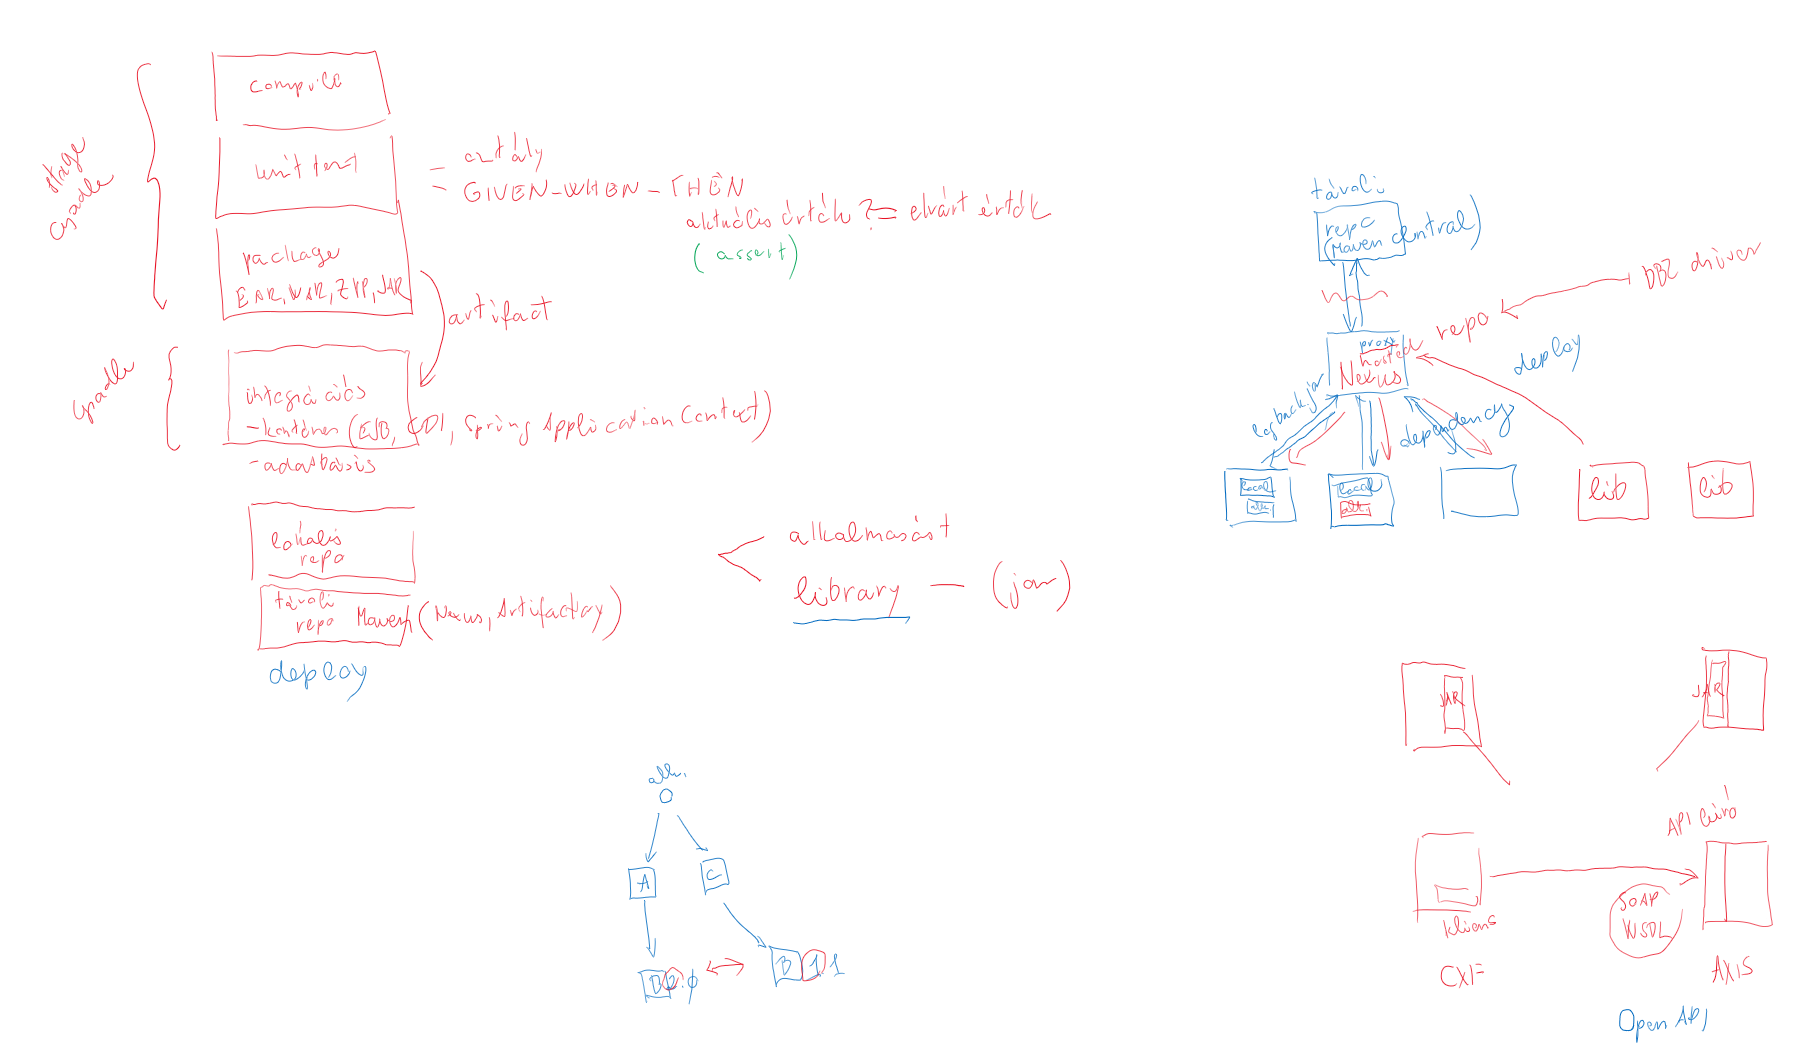 stage
Gradle
compile
unit test
- osztály
- GIVEN-WHEN-THEN
aktuális érték ?= elvárt érték
(assert)
package
EAR, WAR, ZIP, JAR
artifact
Gradle
integrációs
- konténer (EJB, CDI, Spring Application Context)
- adatbázis
lokális
repo
távoli
repo Maven (Nexus, Artifactory)
deploy
alkalmazást
library — (jar)
alk.
A
C
B 2.0
B 1.1
távoli
repo
(Maven Central)
DB2 driver
repo
proxy
hosted
Nexus
deploy
logback.jar
dependency
local
alk.
local
alk.
lib
lib
JAR
JAR
API leíró
SOAP
WSDL
kliens
CXF
AXIS
Open API